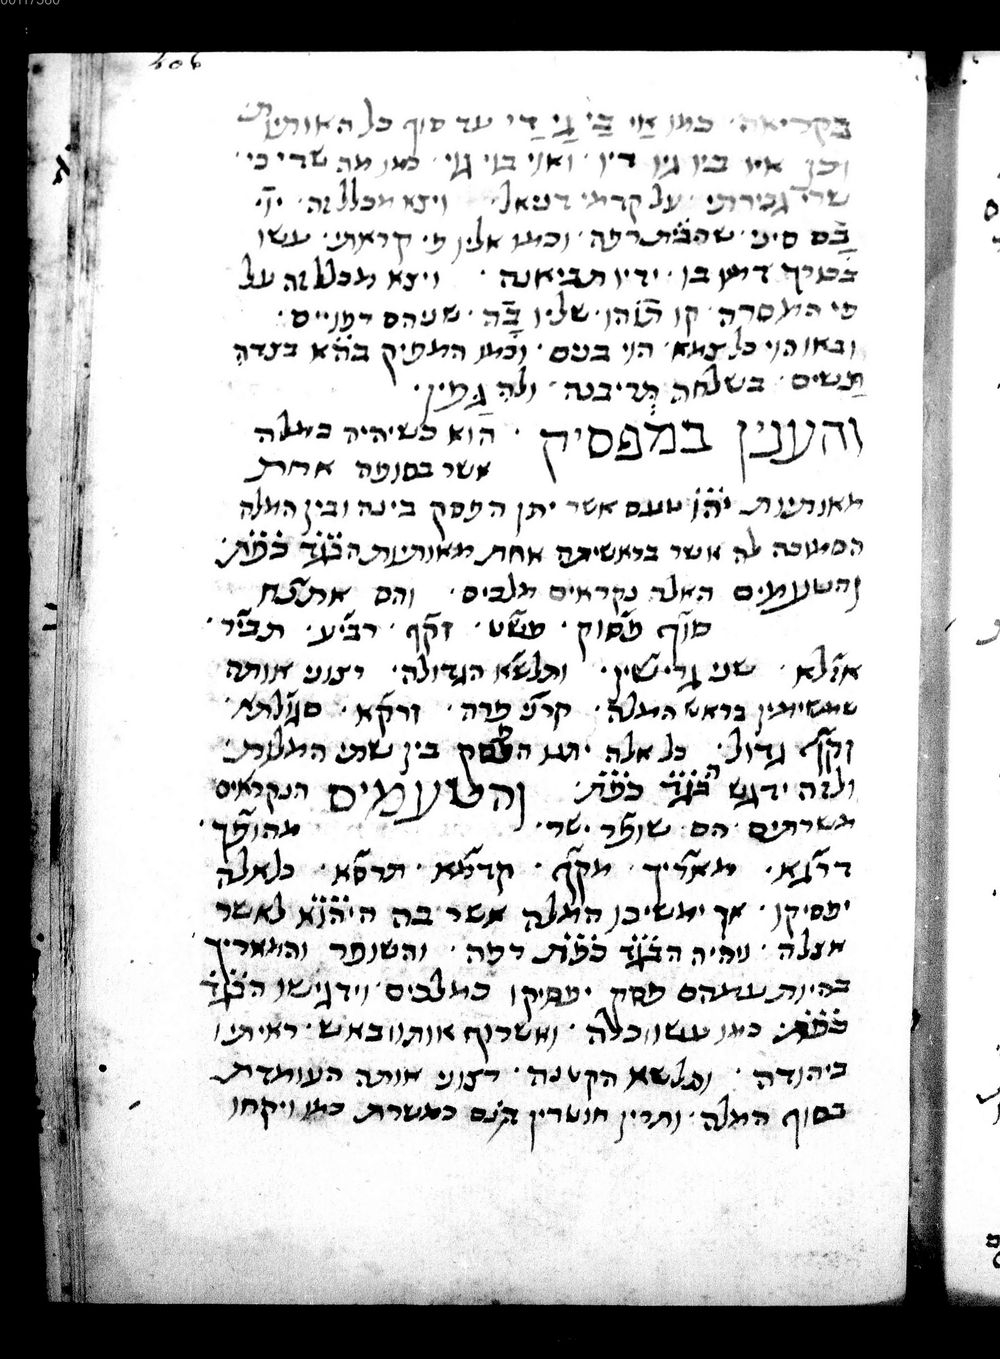 בקריאה · כמו אַוי בַי גַי דַי עד סוף כל האותיות
וכן איו ביו גיו דיו · ואוי בוי גוי · כמו מה שדי כי ·
שרי גבירתי · על קדמי דניאל · ויצא מכלל זה · יוֿיֿ
בָם סיני · שהבית רפה · וכמו אליו פי קראתי · עשו
כדרך דמשׂ בו · ידיו תביאנה · ויצא מכלל זה על
פי המסרה · קו תוהו · שליו בָהֿ · שניהם רפויים ·
ובאו הוי כל צמא · הוי בנים · וכמו המפיק בהא בנדה
תנשים · בשלחה תריבנה · ולה גַמין ·
והענין במפסיק · הוא כשיהיה במלה
אשר בסופה אחת
מאותיות יהוֿ טעם אשר יתן הפסק בינה ובין המלה
הסמוכה לה אשר בראשיתה אחת מאותיות הבֿגֿדֿ כֿפֿתֿ ·
והטעמים האלה נקראים מלכים · והם אתנח
סוף פסוק · פשט · זקף · רביע · תביר ·
אזלא · שני גרישין · ותלשא הגדולה · רצוני אותה
שמשימין בראש המלה · קרני פרה · זרקא · סגולתא ·
זקף גדול · כל אלה יתנו הפסק בין שתי המלות ·
ולזה ידגש הבֿגֿדֿ כֿפֿתֿ · והטעמים הנקראים
משרתים הם שופר ישר · מהופך ·
דרגא · מאריך · מקף · קדמא · תרסא · כל אלה
יפסיקו · אך ימשיכו המלה אשר בה היהוֿא לאשר
אצלה · ויהיה הבֿגֿדֿ כֿפֿתֿ רפה · והשופר והמאריך
בהיות עמהם פסק יפסיקו כמלכים וידגישו הבֿגֿדֿ
כֿפֿתֿ · כמו עשו כלה · ואשרוף אותו באש · ראיתנו
ביהודה · ותלשא הקטנה · רצוני אותה העומדת
בסוף המלה · ותרין חוטרין הנם כמשרת כמו ויקחו